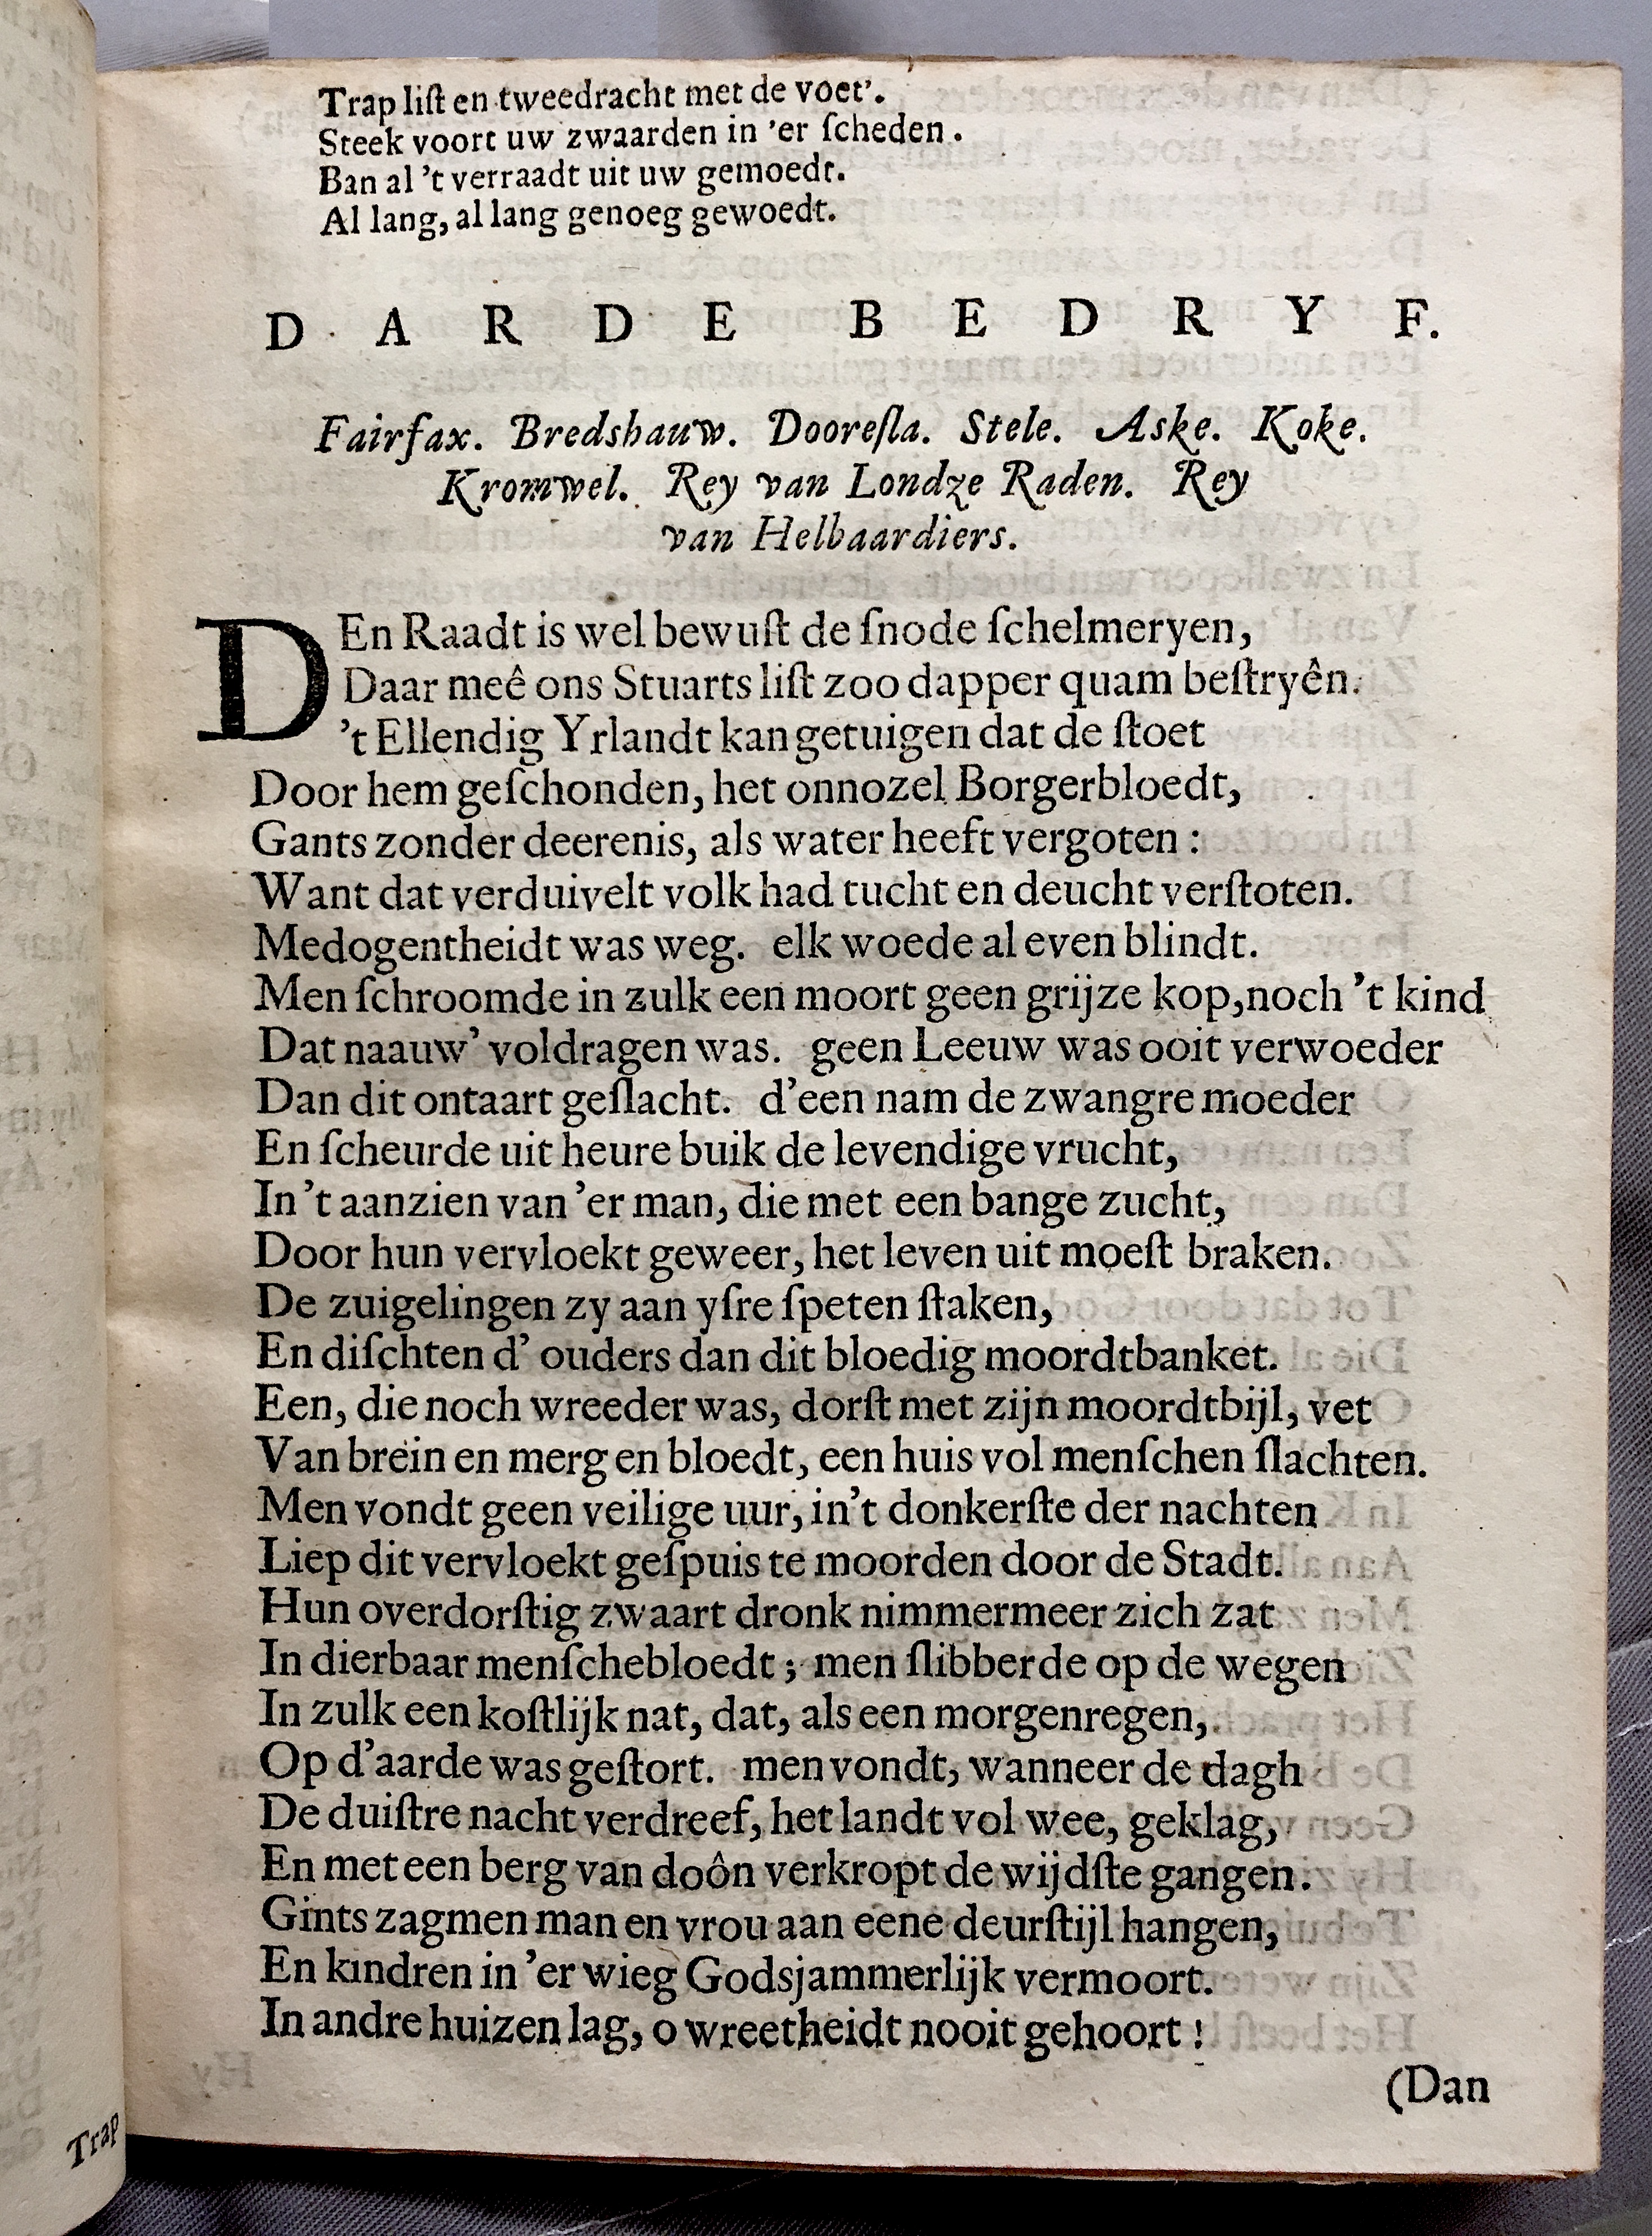 Trap liſt en tweedracht met de voet'.
Steek voort uw zwaarden in 'er ſcheden.
Ban al 't verraadt uit uw gemoedt.
Al lang, al lang genoeg gewoedt.
DARDE BEDRYF.
Fairfax. Bredshauw. Dooreſla. Stele. Aske. Koke.
Kromwel. Rey van Londze Raden. Rey
van Helbaardiers.
DEn Raadt is wel bewuſt de ſnode ſchelmeryen,
Daar meê ons Stuarts liſt zoo dapper quam beſtryên.
't Ellendig Yrlandt kan getuigen dat de ſtoet
Door hem geſchonden, het onnozel Borgerbloedt,
Gants zonder deerenis, als water heeft vergoten:
Want dat verduivelt volk had tucht en deucht verſtoten.
Medogentheidt was weg. elk woede al even blindt.
Men ſchroomde in zulk een moort geen grijze kop, noch 't kind
Dat naauw' voldragen was. geen Leeuw was ooit verwoeder
Dan dit ontaart geſlacht. d'een nam de zwangre moeder
En ſcheurde uit heure buik de levendige vrucht,
In 't aanzien van 'er man, die met een bange zucht,
Door hun vervloekt geweer, het leven uit moeſt braken.
De zuigelingen zy aan yſre ſpeten ſtaken,
En diſchten d' ouders dan dit bloedig moordtbanket.
Een, die noch wreeder was, dorſt met zijn moordtbijl, vet
Van brein en merg en bloedt, een huis vol menſchen ſlachten.
Men vondt geen veilige uur, in't donkerſte der nachten
Liep dit vervloekt geſpuis te moorden door de Stadt.
Hun overdorſtig zwaart dronk nimmermeer zich zat
In dierbaar menſchebloedt; men ſlibberde op de wegen
In zulk een koſtlijk nat, dat, als een morgenregen,
Op d'aarde was geſtort. men vondt, wanneer de dagh
De duiſtre nacht verdreef, het landt vol wee, geklag,
En met een berg van doôn verkropt de wijdſte gangen.
Gints zagmen man en vrou aan eene deurſtijl hangen,
En kindren in 'er wieg Godsjammerlijk vermoort.
In andre huizen lag, o wreetheidt nooit gehoort!
(Dan
Trap